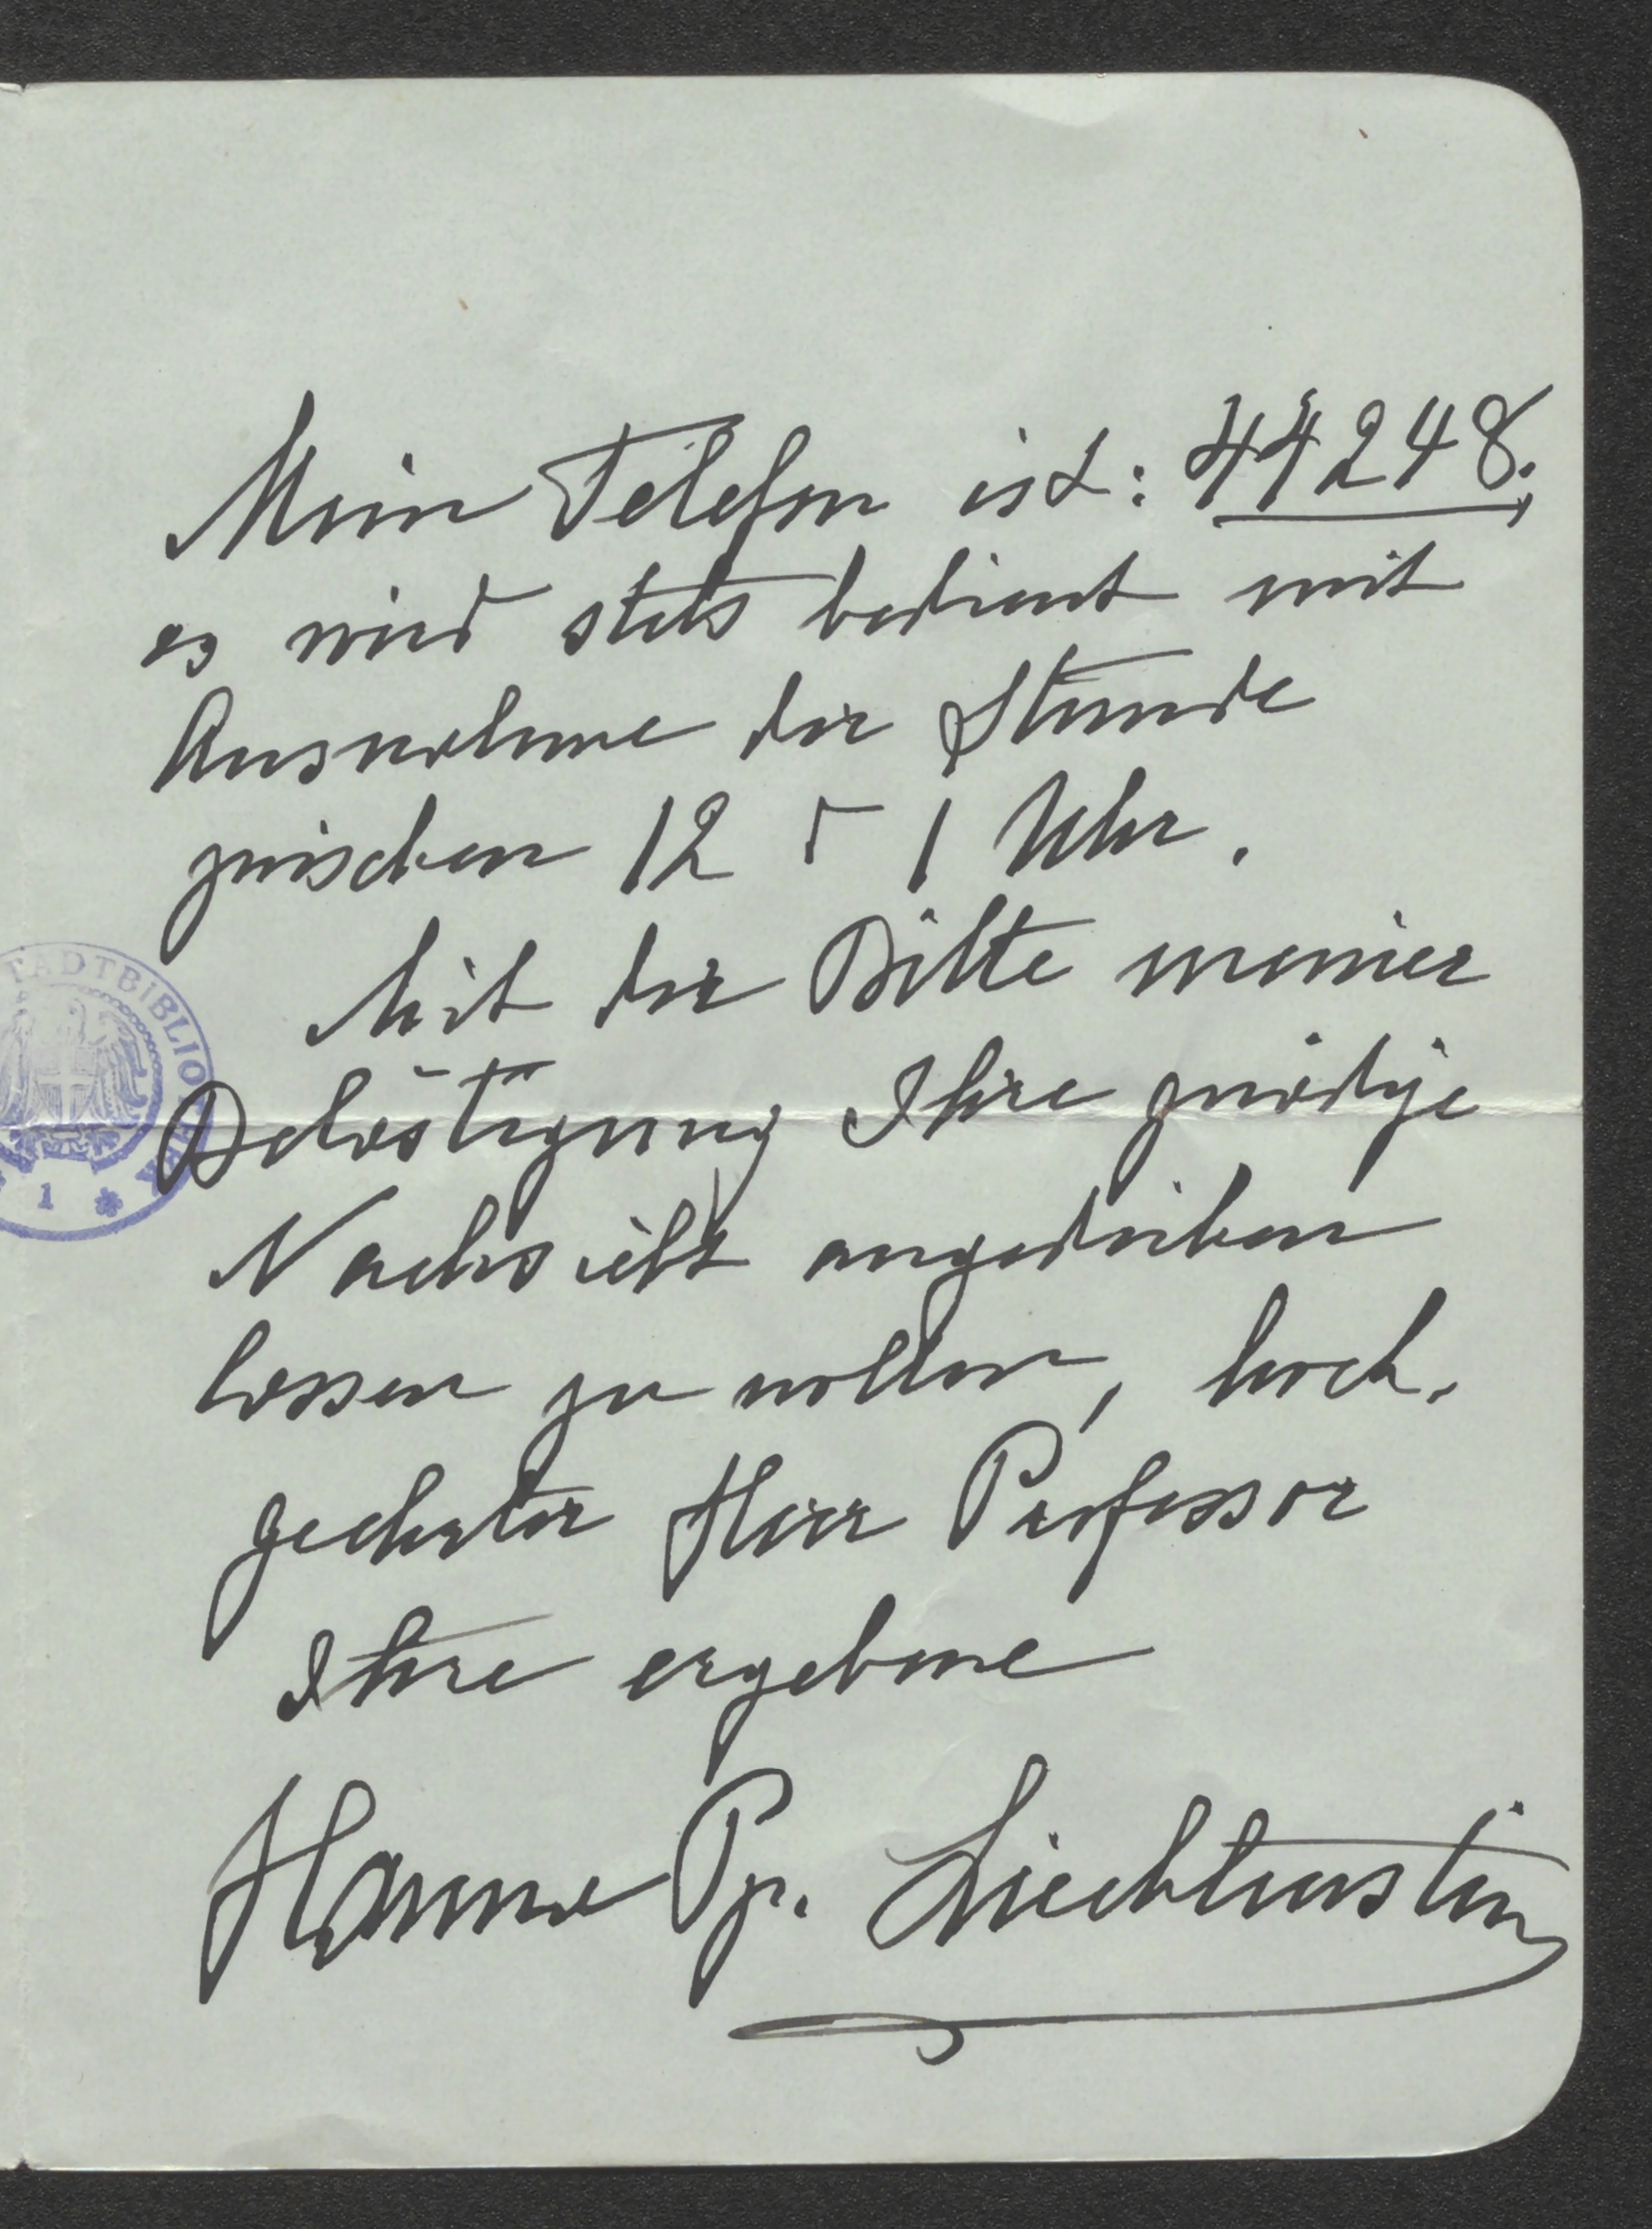 Mein Telefon ist: 44248.,
es wird stets bedient mit
Ausnahme der Stunde
zwischen 12 & 1 Uhr.
Mit der Bitte meiner
Belästigung Ihre gnädige
Nachsicht angedeihen
lassen zu wollen, hoch-
geehrter Herr Professor
Ihre ergebene
Hanna Pz. Liechtenstein
STADTBIBLIOTHEK
1 *